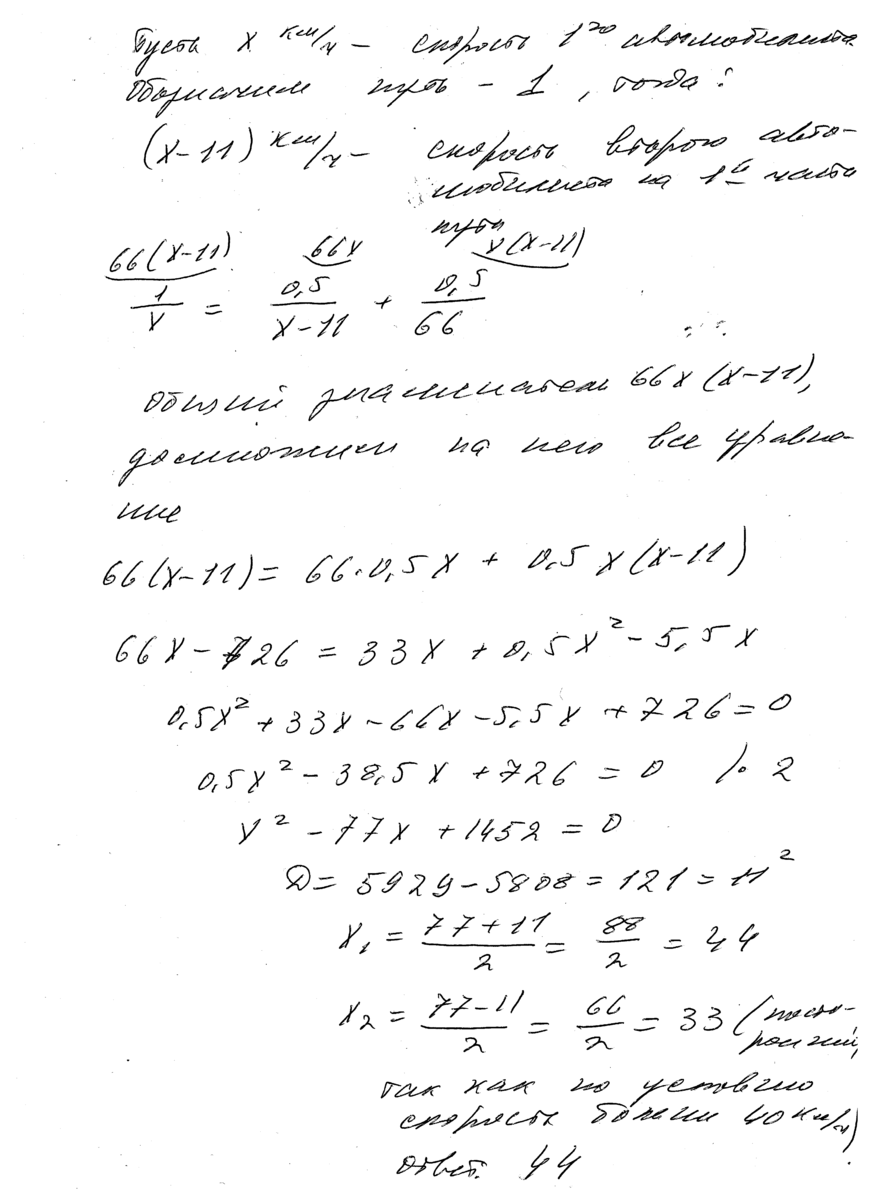 Пусть x км/ч – скорость 1го автомобилиста
Обозначим путь – 1, тогда:
(x–11) км/ч – скорость второго авто-
мобилиста на 1й части
пути
66(x–11) 66x x(x–11)
1/x = 0,5/(x–11) + 0,5/66
общий знаменатель 66x(x–11),
домножим на него все уравне-
ние
66(x–11) = 66·0,5x + 0,5x(x–11)
66x – 726 = 33x + 0,5x² – 5,5x
0,5x² + 33x – 66x – 5,5x + 726 = 0
0,5x² – 38,5x + 726 = 0 /· 2
x² – 77x + 1452 = 0
D = 5929 – 5808 = 121 = 11²
x₁ = (77+11)/2 = 88/2 = 44
x₂ = (77–11)/2 = 66/2 = 33 (посто-
ронний,
так как по условию
скорость больши 40 км/ч)
ответ. 44